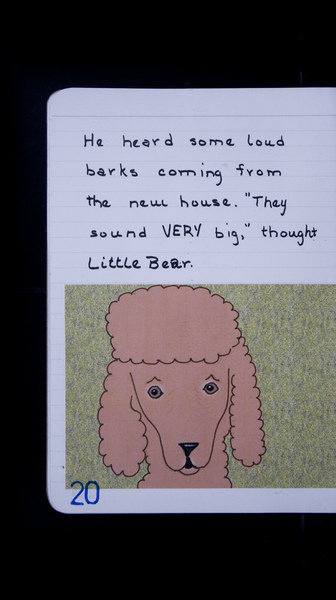 He heard some loud
barks coming from
the new house. "They
sound VERY big," thought
Little Bear.
20